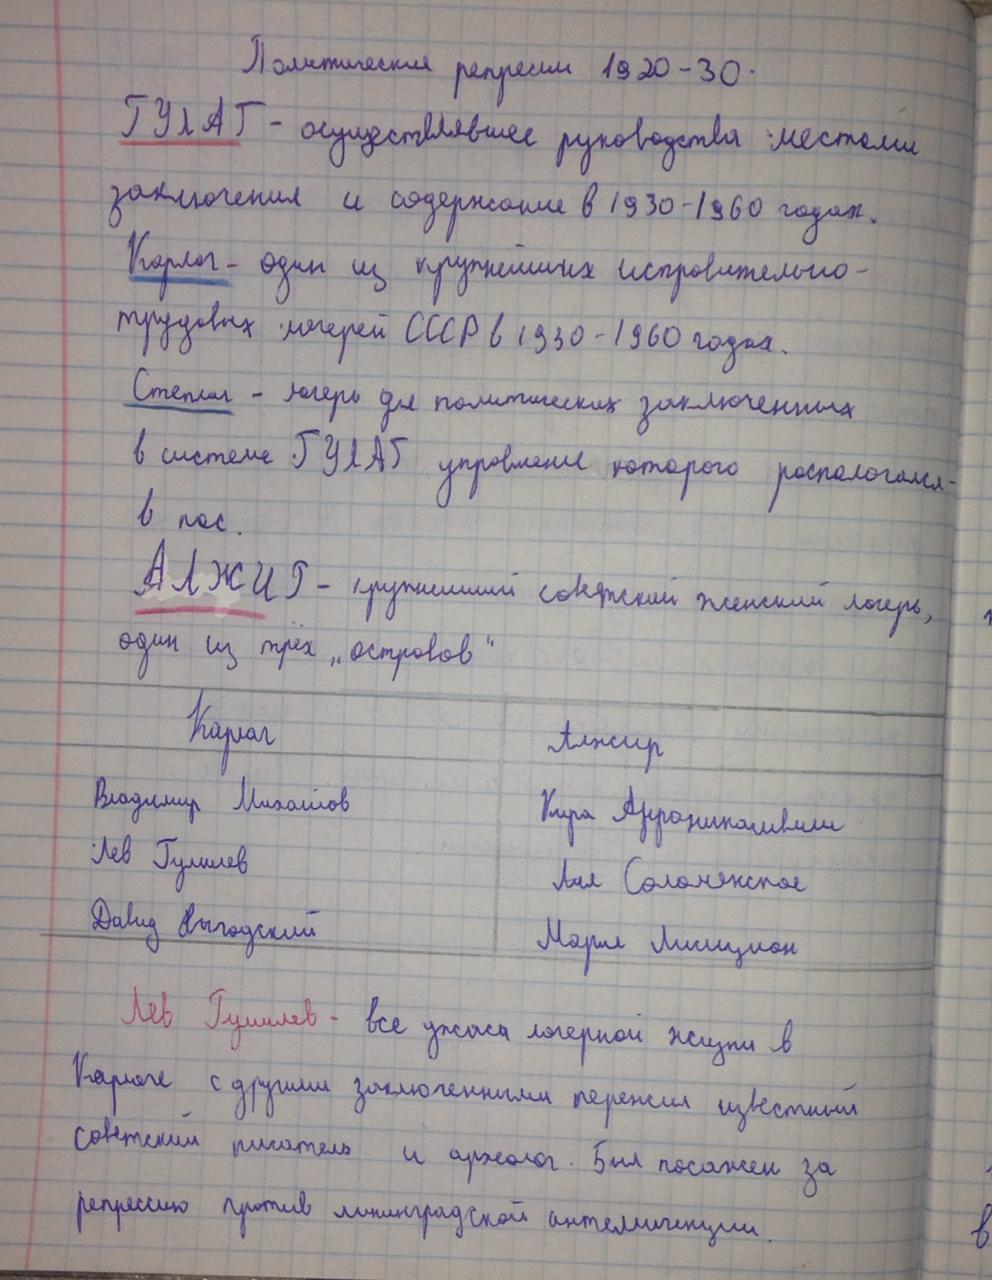 Политические репресии 1920-30.
ГУЛАГ - осуществлявшее руководства местами
заключения и содержание в 1930-1960 годах.
Карлаг - один из крупнейших исправительно-
трудовых лагерей СССР в 1930-1960 годах.
Степлаг - лагерь для политических заключенных
в системе ГУЛАГ управление которого распологался-
в пос.
АЛЖИР - крупнейший советский женский лагерь,
один из трёх „островов"
Карлаг Алжир
Владимир Михайлов Кира Андроникашвили
Лев Гумилев Лия Соломянское
Давид Выгодский Мария Лисициан
Лев Гумилев - все ужаса лагерной жизни в
Карлаге с другими заключенными пережил известный
советский писатель и археолог. Был посажен за
репрессию против линин­градской антеллигенции.
в